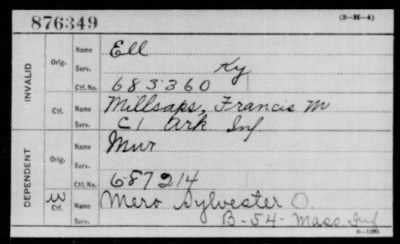 876349 (3-M-4)
INVALID
Orig. Name Ell
Serv. Ky
Ctf. No. 683360
Ctf. Name Millsaps, Francis M
Serv. C1 Ark Inf
DEPENDENT
Orig. Name Mur
Serv.
Ctf. No. 687214
W Ctf. Name Mero Sylvester O.
Serv. B-54- Mass Inf